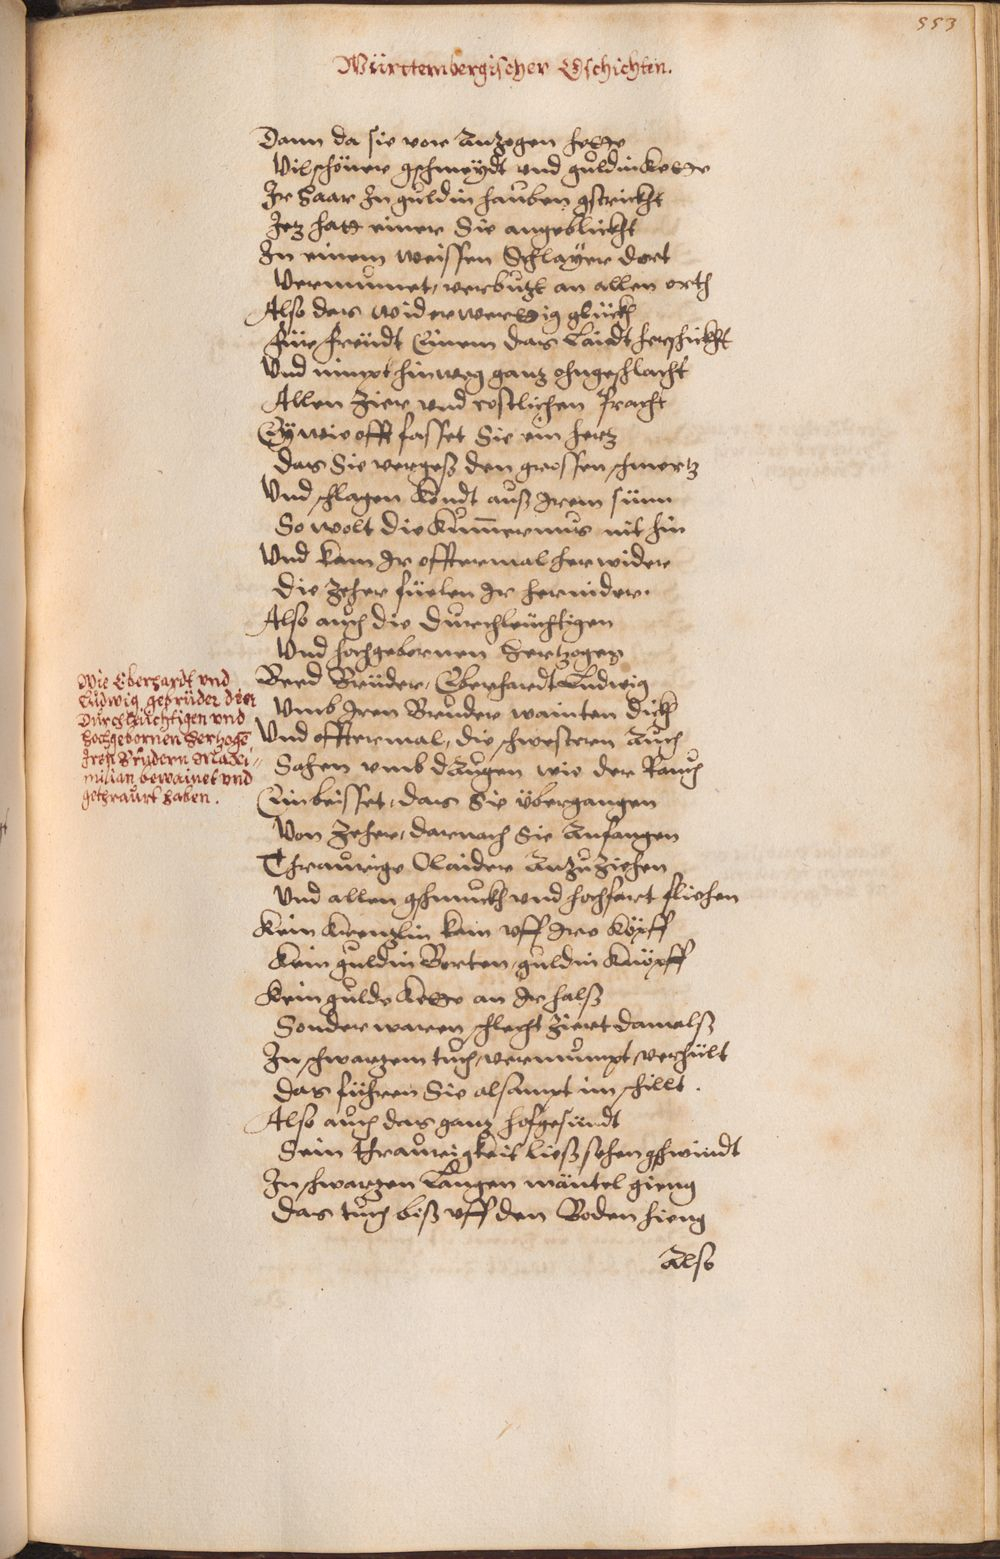 553
Württembergischer Gschichten.
Dann da sie vor Anzogen hette
Vil schöner gschmeydt und guldin Kette
Ir Haar In guldin hauben gstrickht
Jetz hatt einer Sie angeblickht
In einem weissen Schlayer dort
Vermumet, verbutzt an allen orth
Also das widerwertig glückh
für freüdt Einem das Laidt herschickht
Und nimpt hinweg ganz ohngeschlacht
Allen Zier und costlichen Pracht
Ey wie offt fasset Sie ein hertz
Das Sie vergeß den grossen schmertz
Und schlagen kondt auß Irem sünn
So wolt die Kum̄ernus nit hin
Und kam Ir offtermal herwider
Die Zeher füelen Ir hernider.
Also auch die Durchleuchtigen
Und hochgebornen Hertzogen
Beed Brüder, Eberhardt Ludwig
Umb Iren Bruder wainten dick
Und offtermal, die schwestern Auch
Sahen umb d'Augen wie der Rauch
Einbeisset, das Sie übergangen
Von Zeher, darnach Sie Anfangen
Thraurige Claider Anzuziehen
Und allen gschmuckh und hochfart fliehen
Kein Krentzlin kam uff Ire Köpff
Kein guldin Borten, guldin Knöpff
Kein guldе Kette an Ir halß
Sonder waren schlecht Ziert damalß
In schwarzem tuch, vermumpt, verhült
Das führen Sie alsampt im schillt.
Also auch das ganz hofgesindt
Sein Thraurigkeit ließ sehen gschwindt
In schwarzen Langen mäntel gieng
Das tuch biß uff den Boden hieng
Also
Wie Eberhardt und
Ludwig gebrüder die
Durchleuchtigen und
Hochgebornen Herzogē
Iren Brüdern Maxi-
milian bewainet und
gethraurt haben.